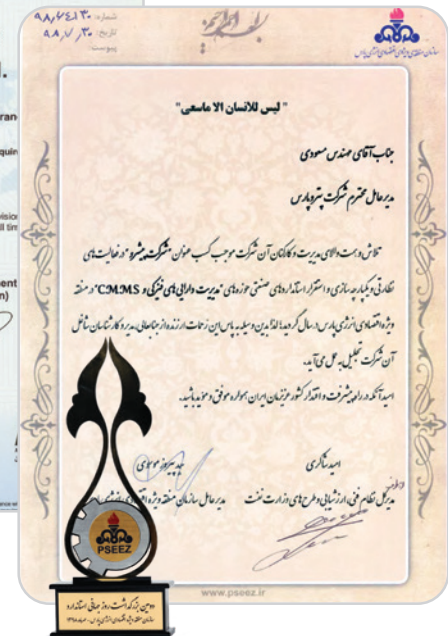 شماره:
تاریخ: ۹۸٫۷٫۳۰
پیوست:
سازمان منطقه ویژه اقتصادی انرژی پارس
" لیس للانسان الا ماسعی"
جناب آقای مهندس مسعودی
مدیرعامل محترم شرکت پتروپارس
تلاش و همت والای مدیریت و کارکنان آن شرکت موجب کسب عنوان "شرکت پیشرو" در فعالیت های
نظارتی و یکپارچه سازی و استقرار استانداردهای صنعتی حوزه های "مدیریت دارایی های فیزیکی و C.M.M.S" در منطقه
ویژه اقتصادی انرژی پارس در سال گردید؛ لذا بدین وسیله به پاس این زحمات ارزنده از جنابعالی، مدیر و کارشناسان شاغل
آن شرکت تجلیل به عمل می آید.
امید آنکه در راه پیشرفت و اقتدار کشور عزیزمان ایران همواره موفق و مؤید باشید.
امید شاکری
سید پیروز موسوی
مدیرکل نظام فنی، ارزشیابی و طرح های وزارت نفت
مدیرعامل سازمان منطقه ویژه اقتصادی انرژی پارس
PSEEZ
www.pseez.ir
دومین بزرگداشت روز جهانی استاندارد
سازمان منطقه ویژه اقتصادی انرژی پارس